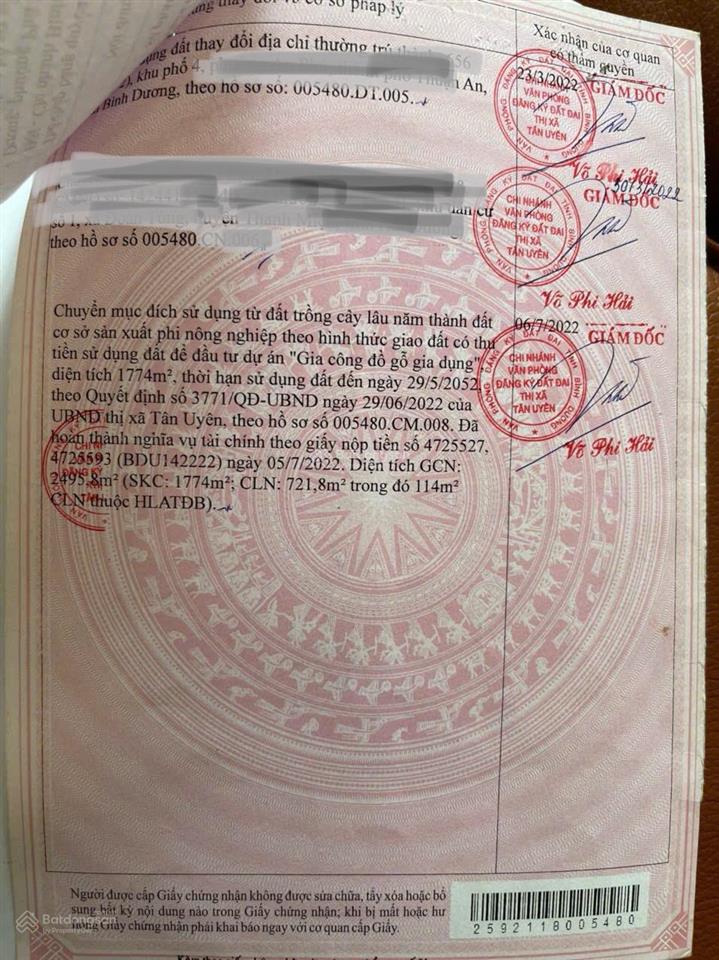 ung thay đổi và cơ sở pháp lý
Xác nhận của cơ quan
có thẩm quyền
dụng đất thay đổi địa chỉ thường trú
khu phố 4,
Thuận An,
Bình Dương, theo hồ sơ số: 005480.DT.005.
23/3/2022
GIÁM ĐỐC
VĂN PHÒNG ĐĂNG KÝ ĐẤT ĐAI TỈNH BÌNH DƯƠNG
CHI NHÁNH
VĂN PHÒNG
ĐĂNG KÝ ĐẤT ĐAI
THỊ XÃ
TÂN UYÊN
Võ Phi Hải
dân cư
số 1, xã
theo hồ sơ số 005480.CN.006
30/3/2022
GIÁM ĐỐC
VĂN PHÒNG ĐĂNG KÝ ĐẤT ĐAI TỈNH BÌNH DƯƠNG
CHI NHÁNH
VĂN PHÒNG
ĐĂNG KÝ ĐẤT ĐAI
THỊ XÃ
TÂN UYÊN
Võ Phi Hải
Chuyển mục đích sử dụng từ đất trồng cây lâu năm thành đất
cơ sở sản xuất phi nông nghiệp theo hình thức giao đất có thu
tiền sử dụng đất để đầu tư dự án "Gia công đồ gỗ gia dụng",
diện tích 1774m², thời hạn sử dụng đất đến ngày 29/5/2052,
theo Quyết định số 3771/QĐ-UBND ngày 29/06/2022 của
UBND thị xã Tân Uyên, theo hồ sơ 005480.CM.008. Đã
hoàn thành nghĩa vụ tài chính theo giấy nộp tiền số 4725527,
4725593 (BDU142222) ngày 05/7/2022. Diện tích GCN:
2495,8m² (SKC: 1774m²; CLN: 721,8m² trong đó 114m²
CLN thuộc HLATĐB).
06/7/2022
GIÁM ĐỐC
VĂN PHÒNG ĐĂNG KÝ ĐẤT ĐAI TỈNH BÌNH DƯƠNG
CHI NHÁNH
VĂN PHÒNG
ĐĂNG KÝ ĐẤT ĐAI
THỊ XÃ
TÂN UYÊN
Võ Phi Hải
Người được cấp Giấy chứng nhận không được sửa chữa, tẩy xóa hoặc bổ
sung bất kỳ nội dung nào trong Giấy chứng nhận; khi bị mất hoặc hư
hỏng Giấy chứng nhận phải khai báo ngay với cơ quan cấp Giấy.
2592118005480
Batdongsan
by PropertyGuru